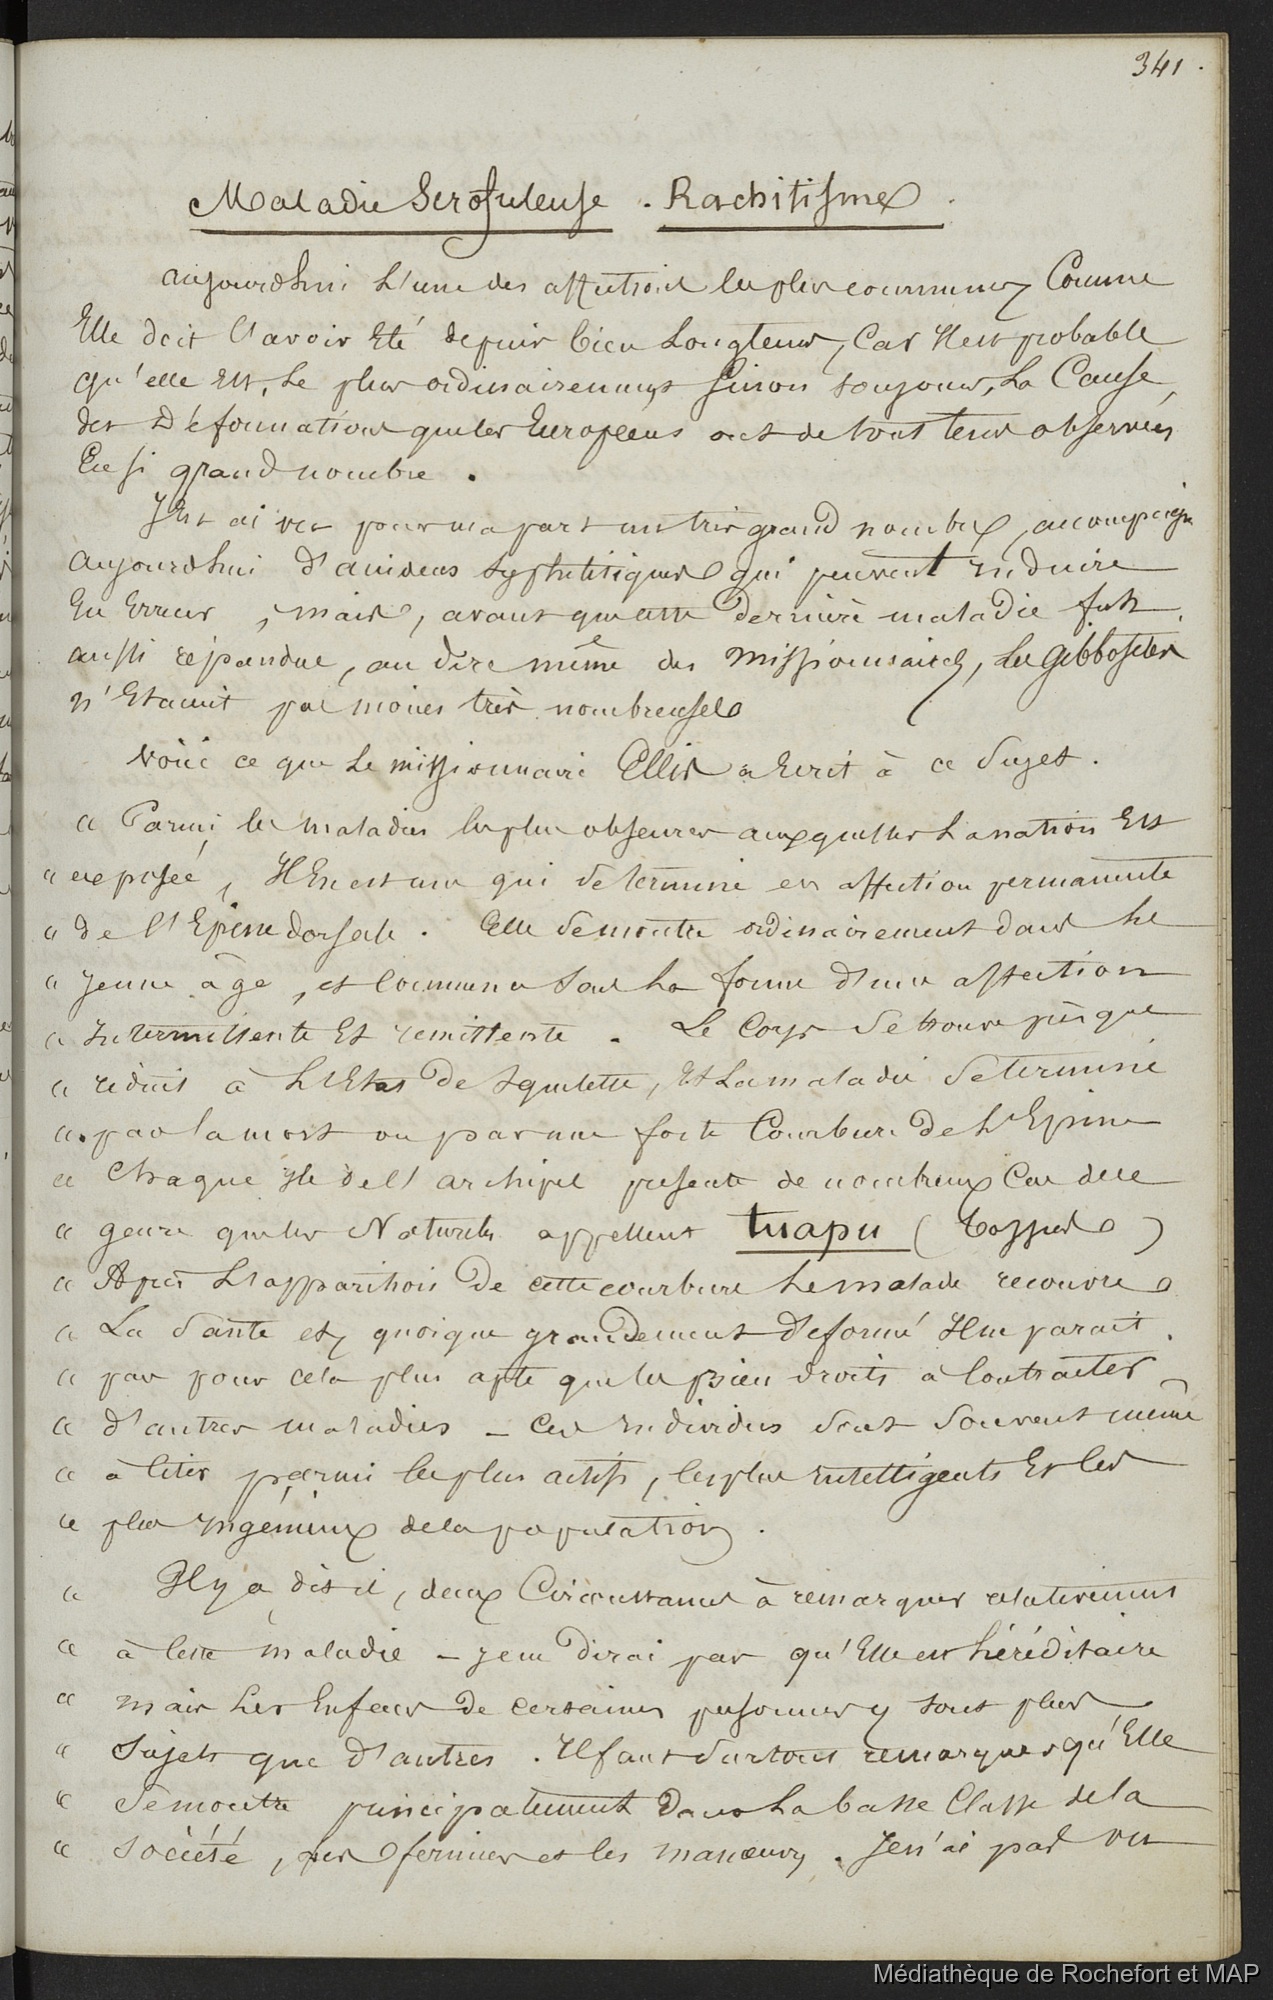 341.
Maladie Scrofuleuse. Rachitisme.
aujourdhui L'une des affections les plus communes, Comme
Elle doit l'avoir Eté depuis bien Longtems, Car Il est probable
qu'elle Est, Le plus ordinairement Sinon toujours, La Cause
des Déformations que les Européens ont de tout tems observées
En si grand nombre.
J'en ai vu pour ma part un très grand nombre, accompagn
aujourdhui d'accidens syphilitiques qui peuvent induire
En Erreur, mais, avant que cette dernière maladie fut
aussi répandue, au dire même des missionnaires, Les Gibbosités
n'Etaient pas moins très nombreuses
Voici ce que Le missionnaire Ellis a Ecrit à ce Sujet.
" Parmi les maladies les plus obscures auxquelles La nation Est
" exposée, Il En est une qui se termine en affection permanente
" de l'Epine dorsale. Elle se montre ordinairement dans Le
" Jeune âge, et Commence Sous La forme d'une affection
" Intermittente Et remittente. Le Corps Se trouve presque
" réduit à L'Etat de Squelette, Et La maladie Se termine
" par la mort ou par une forte Courbure de L'Epine
" Chaque Ile de l'archipel presente de nombreux Cas de ce
" genre que les Naturels appellent tuapu (bossus)
" Après L'apparition de cette courbure Le malade recouvre
" La Santé et, quoique grandement déformé Il ne parait
" pas pour cela plus apte que les bien droits à Contracter
" d'autres maladies - Ces Individus Sont Souvent même
" à Citer parmi les plus actifs, les plus intelligents Et les
" plus Ingénieux de la population.
" Il y a, dit il, deux Circonstances à remarquer relativement
" à Cette maladie - Je ne dirai pas qu'Elle est héréditaire
" mais Les Enfans de certaines personnes y sont plus
" Sujets que d'autres. Il faut Surtout remarquer qu'Elle
" Se montre principalement dans La basse Classe de la
" Société, les fermiers et les manœuvres. Je n'ai pas vu
Médiathèque de Rochefort et MAP